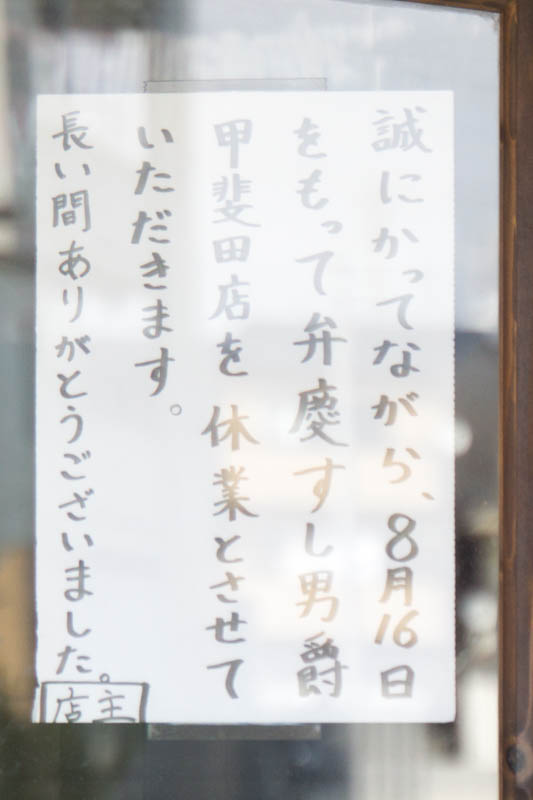 誠にかってながら、8月16日
をもって弁慶すし男爵
甲斐田店を休業とさせて
いただきます。
長い間ありがとうございました。
店主